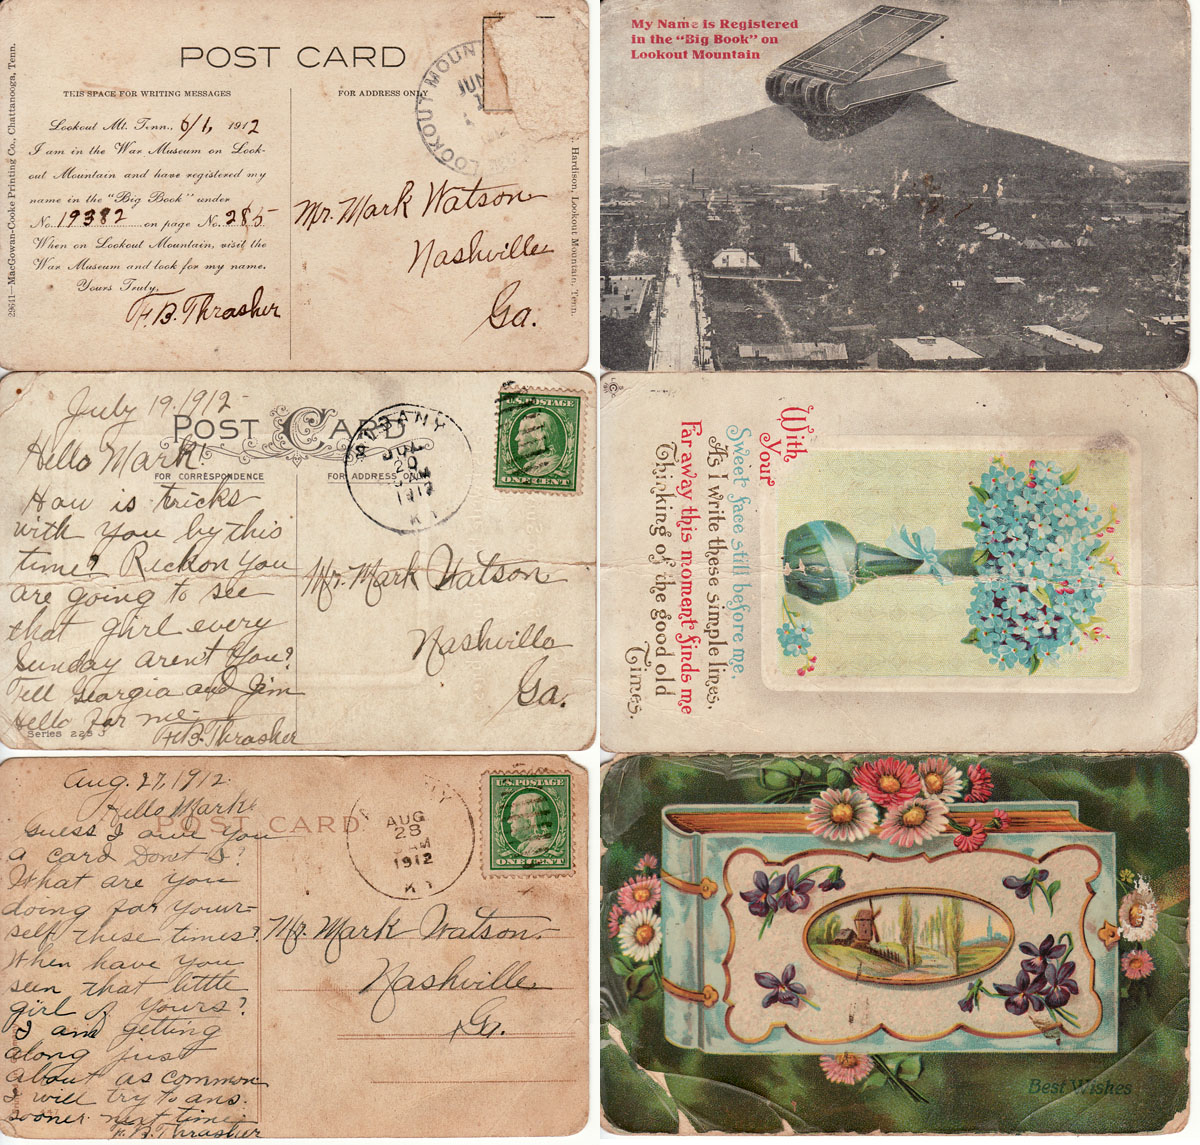 29611—MacGowan-Cooke Printing Co., Chattanooga, Tenn.
POST CARD
THIS SPACE FOR WRITING MESSAGES
Lookout Mt. Tenn., 6/1, 1912
I am in the War Museum on Look-
out Mountain and have registered my
name in the "Big Book" under
No. 19382 on page No. 285
When on Lookout Mountain, visit the
War Museum and look for my name.
Yours Truly,
F.B. Thrasher
FOR ADDRESS ONLY
LOOKOUT MOUN
JUN
Mr. Mark Watson
Nashville
Ga.
Hardison, Lookout Mountain, Tenn.
My Name is Registered
in the "Big Book" on
Lookout Mountain
July 19, 1912
POST CARD
FOR CORRESPONDENCE
FOR ADDRESS ONLY
Hello Mark!
How is tricks
with you by this
time? Reckon you
are going to see
that girl every
Sunday arent you?
Tell Georgia and Jim
Hello for me.
F.B. Thrasher
Series 225
JUL
20
1912
KY
U.S. POSTAGE
ONE CENT
Mr. Mark Watson
Nashville
Ga.
With
Your
Sweet face still before me,
As I write these simple lines,
Far away this moment finds me
Thinking of the good old
Times.
Aug. 27, 1912.
POST CARD
Hello Mark
Guess I owe you
a card Don't I?
What are you
doing for your-
self these times?
When have you
seen that little
girl of yours?
I am getting
along just
about as common
I will try to ans.
sooner next time.
F.B. Thrasher
AUG
28
AM
1912
KY
U.S. POSTAGE
ONE CENT
Mr. Mark Watson
Nashville
Ga.
Best Wishes